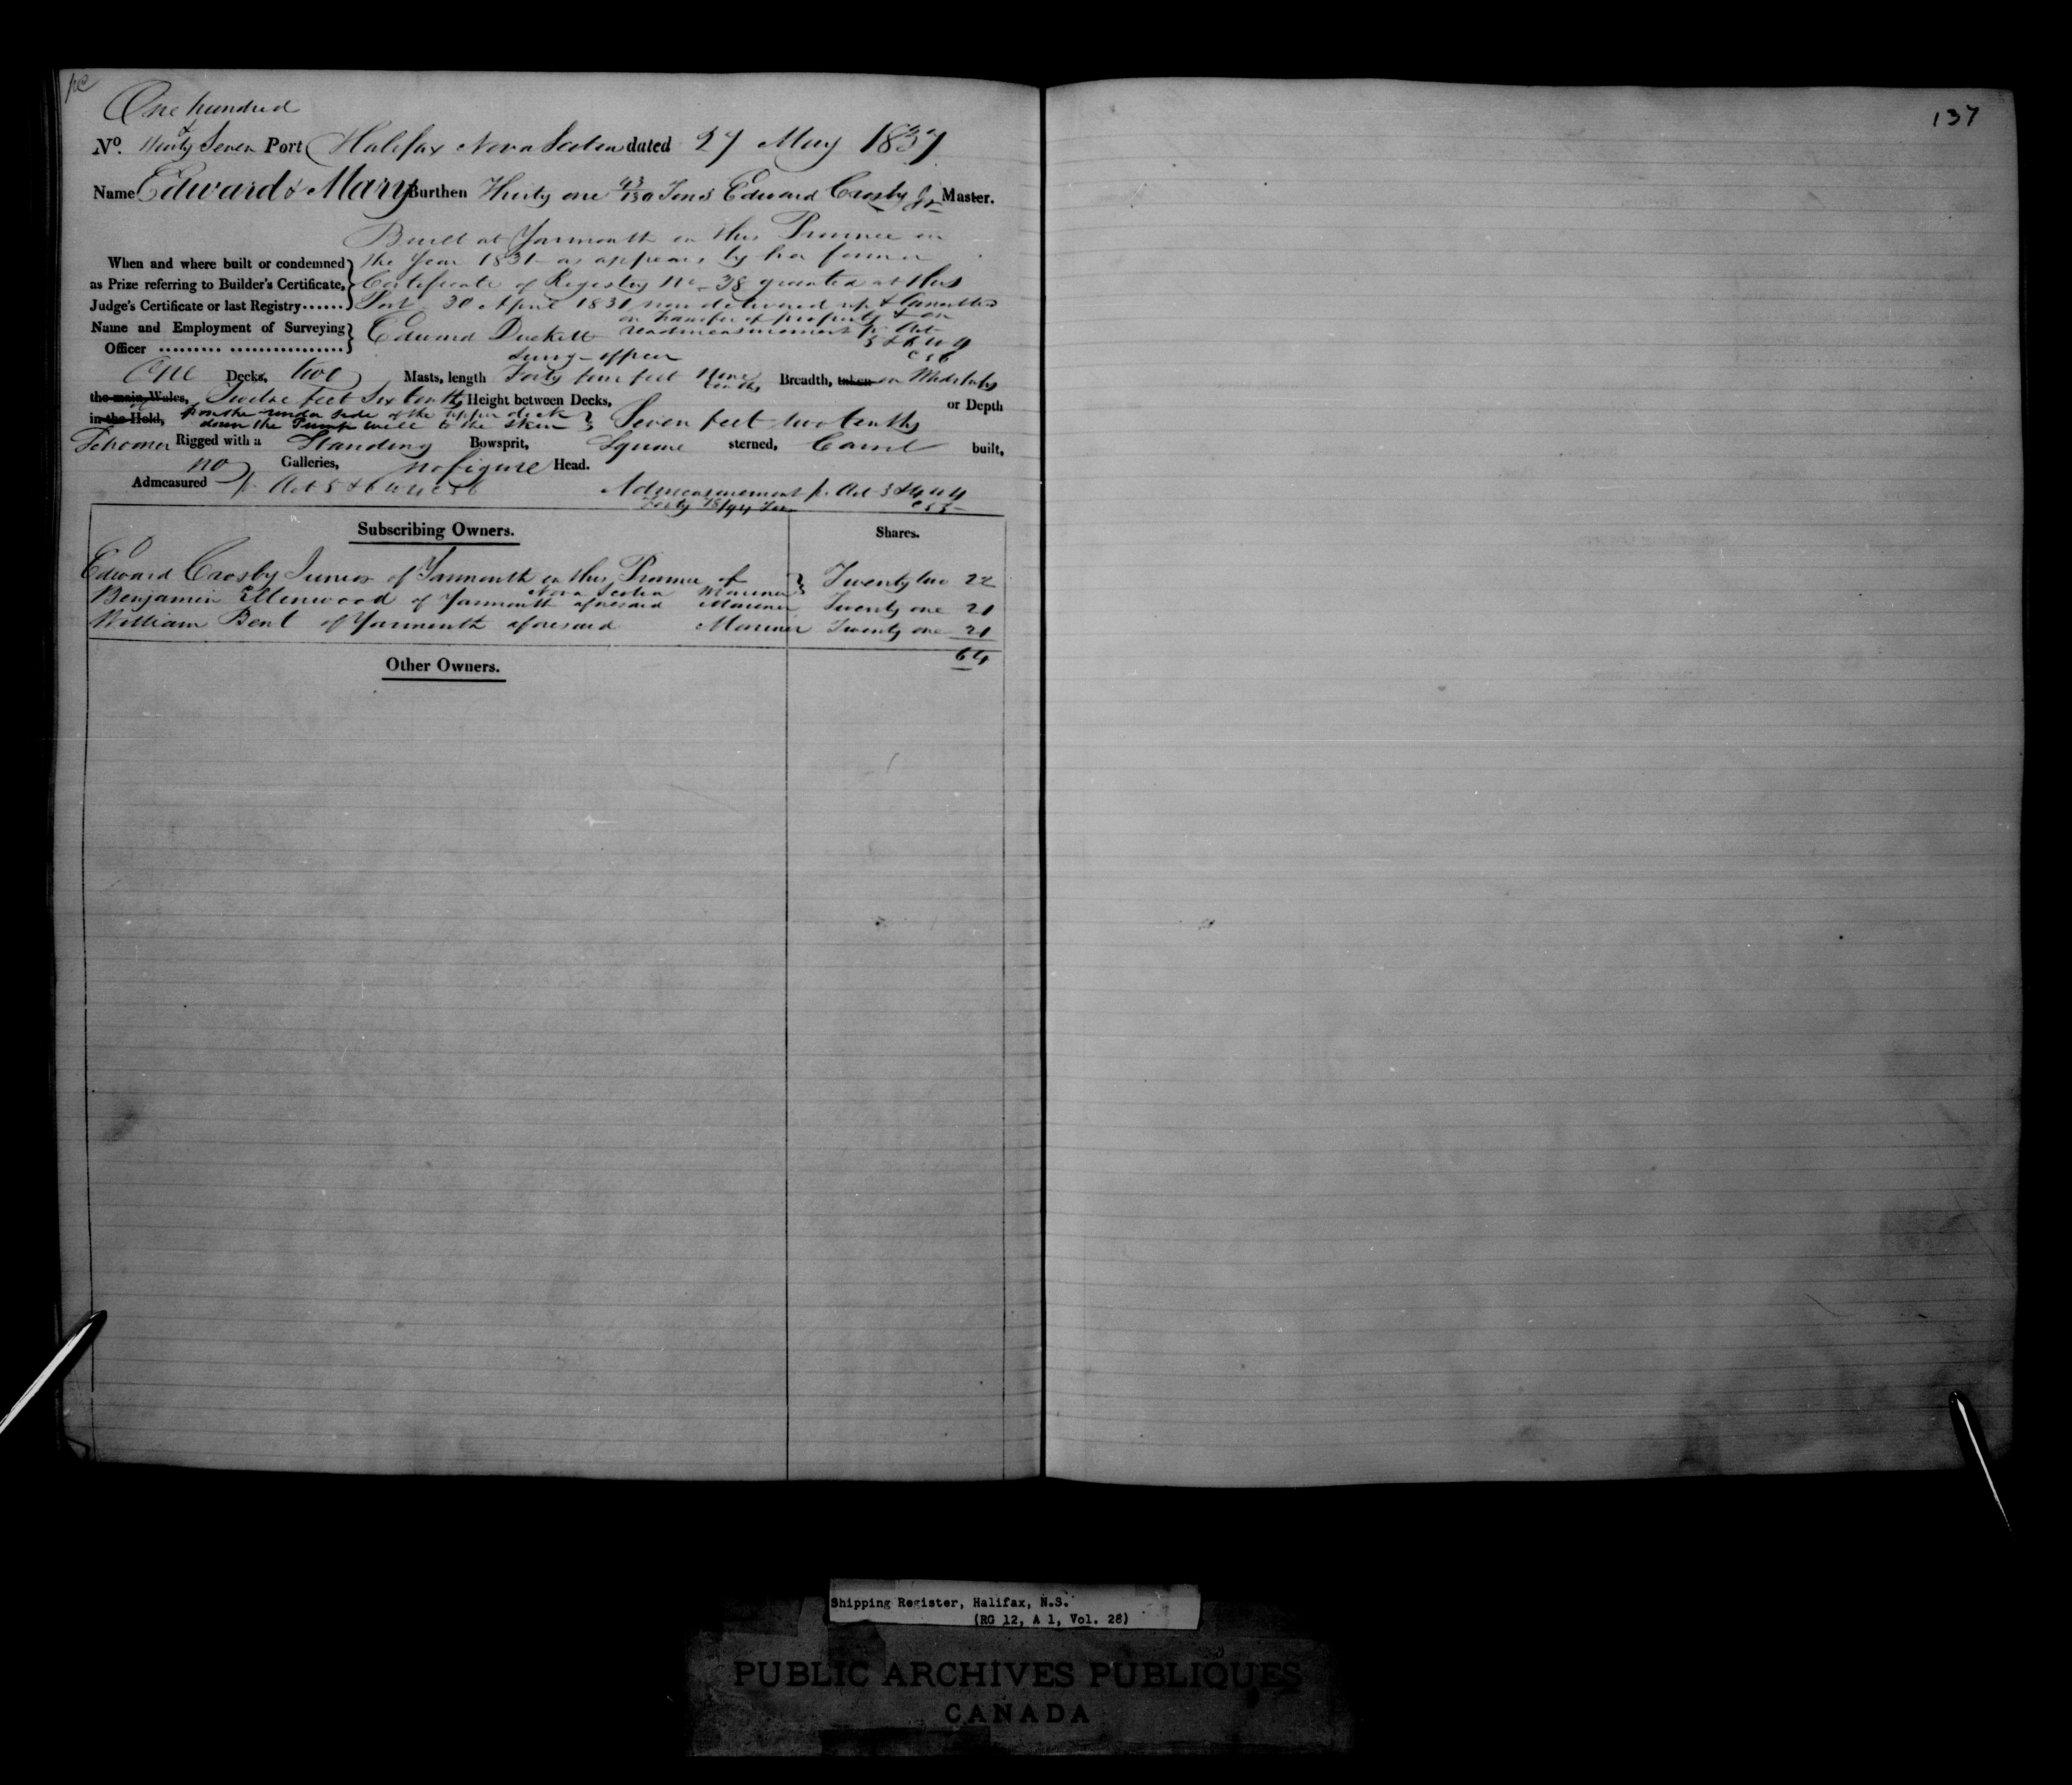 One hundred
137
No. & Thirty Seven Port Halifax Nova Scotia dated 27 May 1837
Name Edward & Mary Burthen Thirty one 43/130 Tons Edward Crosby Jr Master.
Built at Yarmouth in this Province in
When and where built or condemned the Year 1831 as appears by her former
as Prize referring to Builder's Certificate, Certificate of Registry No. 38 granted at this
Judge's Certificate or last Registry...... Port 30 April 1831 now delivered up & Cancelled
on transfer of property & on
Name and Employment of Surveying Edward Duckett readmeasurement pr. Act
Officer ......... ................. 5 & 6 W 4
Survg officer c 56
One Decks, two Masts, length Forty four feet Nine tenths Breadth, taken on Midships
the main Wales, Twelve feet Six tenths Height between Decks, or Depth
in the Hold, from the under side of the upper deck
down the Pump well to the skin Seven feet two tenths
Schooner Rigged with a Standing Bowsprit, Square sterned, Carvel built,
no Galleries, no figure Head.
Admeasured pr. Act 5 & 6 W 4 c 56 Admeasurement pr. Act 3 & 4 W 4
Forty 18/94 Tons c 55
Subscribing Owners. Shares.
Edward Crosby Junior of Yarmouth in this Province of
Nova Scotia Mariner Twenty two 22
Benjamin Ellenwood of Yarmouth aforesaid Mariner Twenty one 21
William Bent of Yarmouth aforesaid Mariner Twenty one 21
64
Other Owners.
Shipping Register, Halifax, N.S.
(RG 12, A 1, Vol. 28)
PUBLIC ARCHIVES PUBLIQUES
CANADA